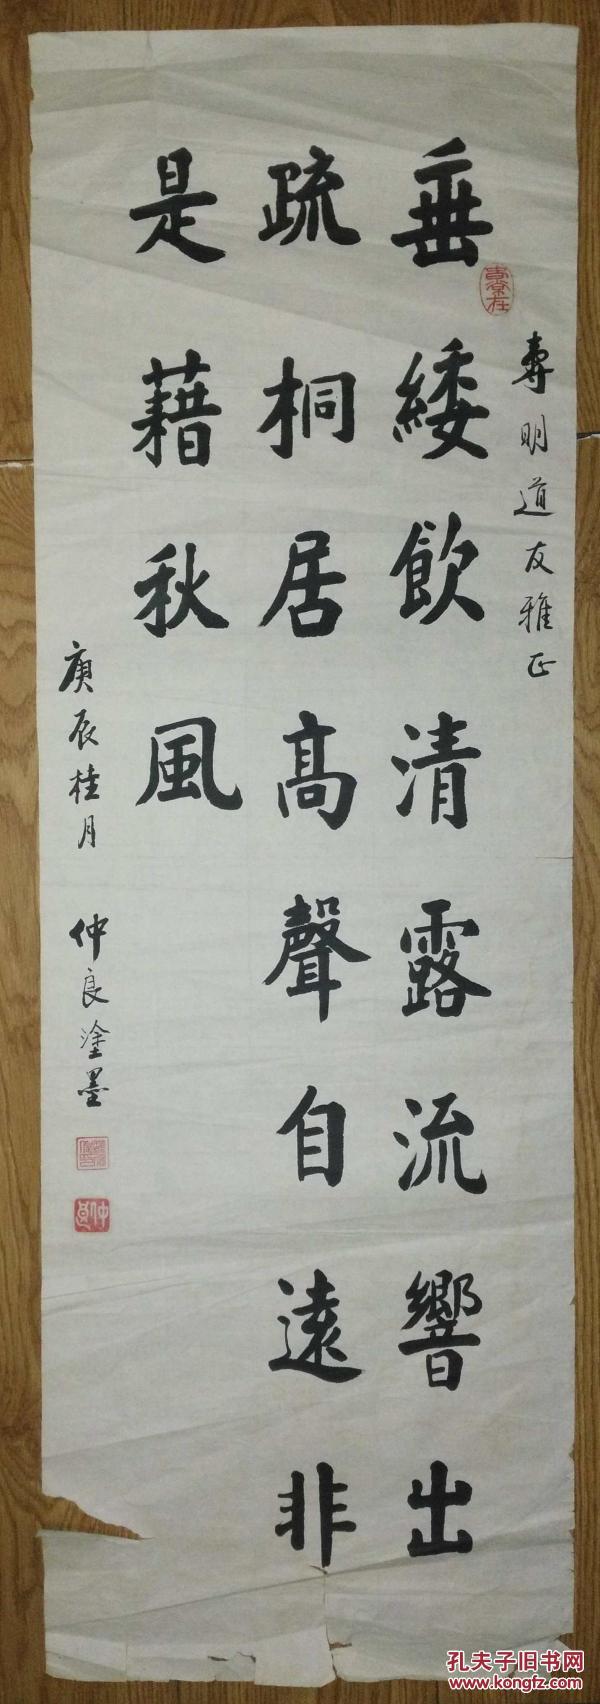 壽明道友雅正
垂緌飲清露流響出
疏桐居高聲自遠非
是藉秋風
庚辰桂月 仲良塗墨
仲良
孔夫子旧书网
www.kongfz.com